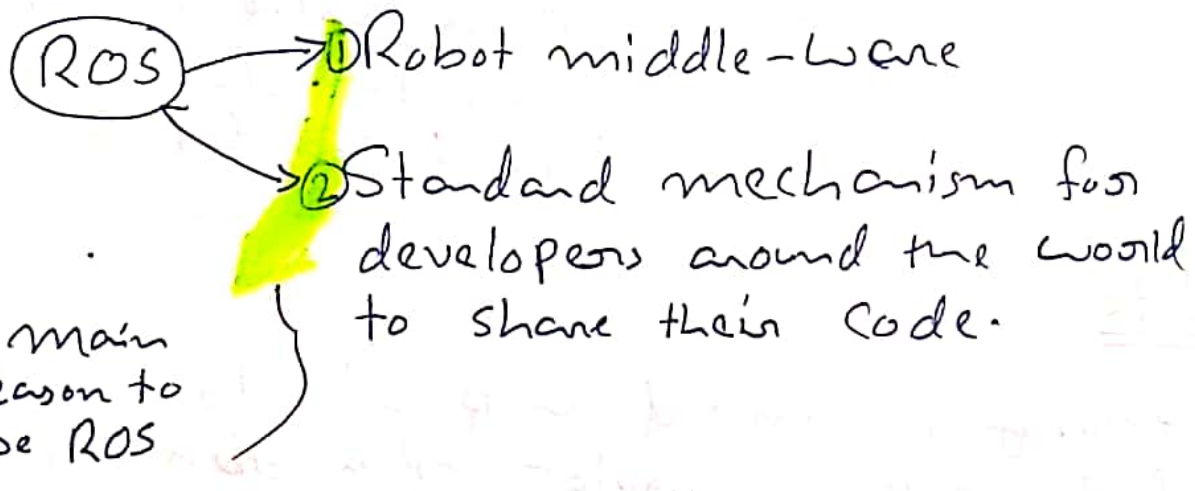 ROS
① Robot middle-ware
② Standard mechanism for
developers around the world
to share their code.
main
eason to
se ROS